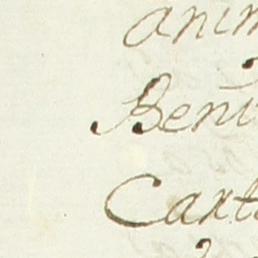 anim
Beni
Carta